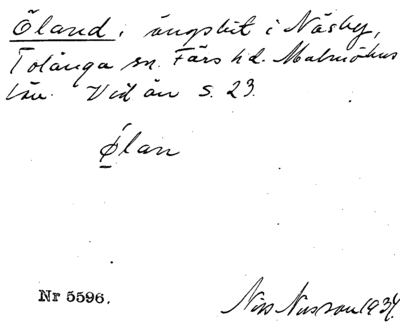 Öland; ängsbit i Näsby,
Tolånga sn. Färs hd. Malmöhus
län. Vid ån S. 23.
Ölan
Nr 5596.
Nils Nilsson 1934.